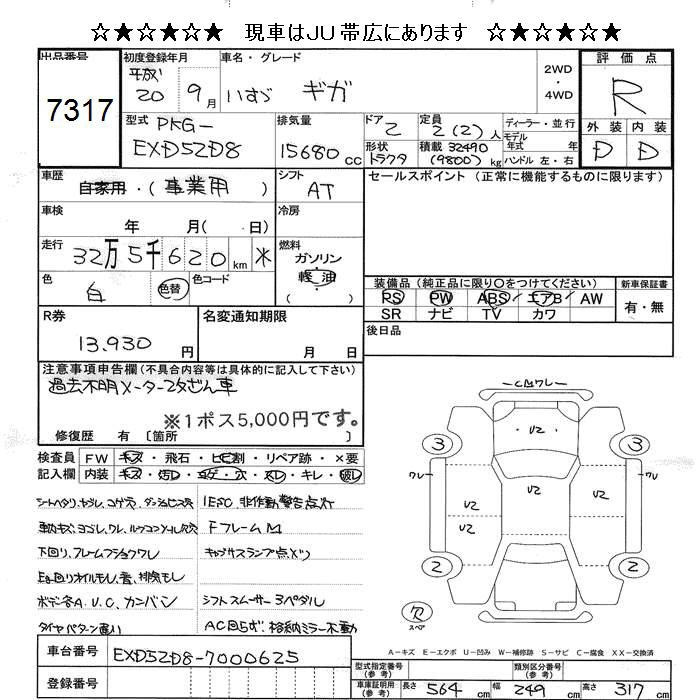 ☆★☆★☆ 現車はJU帯広にあります ☆★☆★☆
出品番号
7317
初度登録年月
平成
20 9月
車名・グレード
いすゞ ギガ
2WD
・
4WD
評価点
R
外装 内装
D D
型式
PKG-
EXD52D8
排気量
15680 cc
ドア
2
形状
トラクタ
定員
2(2)人
積載 32490
(9800) kg
ディーラー・並行
モデル
年式 年
ハンドル 左・右
車歴
自家用・(事業用)
シフト
AT
セールスポイント (正常に機能するものに限ります)
車検
年 月( 日)
冷房
走行
32万5千620km
燃料
ガソリン
軽油
( )
色
白
色替
色コード
装備品 (純正品に限り○をつけてください)
PS PW ABS エアB AW
SR ナビ TV カワ
新車保証書
有・無
R券
13,930 円
名変通知期限
月 日
後日品
注意事項申告欄(不具合内容等は具体的に記入して下さい)
過去不明メーター改ざん車
※1ポス5,000円です。
修復歴 有 〔箇所 〕
検査員 FW キズ・飛石・ヒビ割・リペア跡・×要
記入欄 内装 キズ・汚レ・コゲ・穴・スレ・キレ・破レ
1ESC,非作動警告点灯
FフレームM
下回り,フレームフショクワレ
ボデー各A.U.C,カンバン
シフトスムーサー3ペダル
格納ミラー不動
U2
U2
U2
U2
U2
3
3
2
2
ワレ
ワレ
スペア
A-キズ E-エクボ U-凹み W-補修跡 S-サビ C-腐食 XX-交換済
車台番号
EXD52D8-7000625
登録番号
型式指定番号
(参考)
類別区分番号
(参考)
車庫証明用
(参考)
長さ 564 cm 幅 249 cm 高さ 317 cm